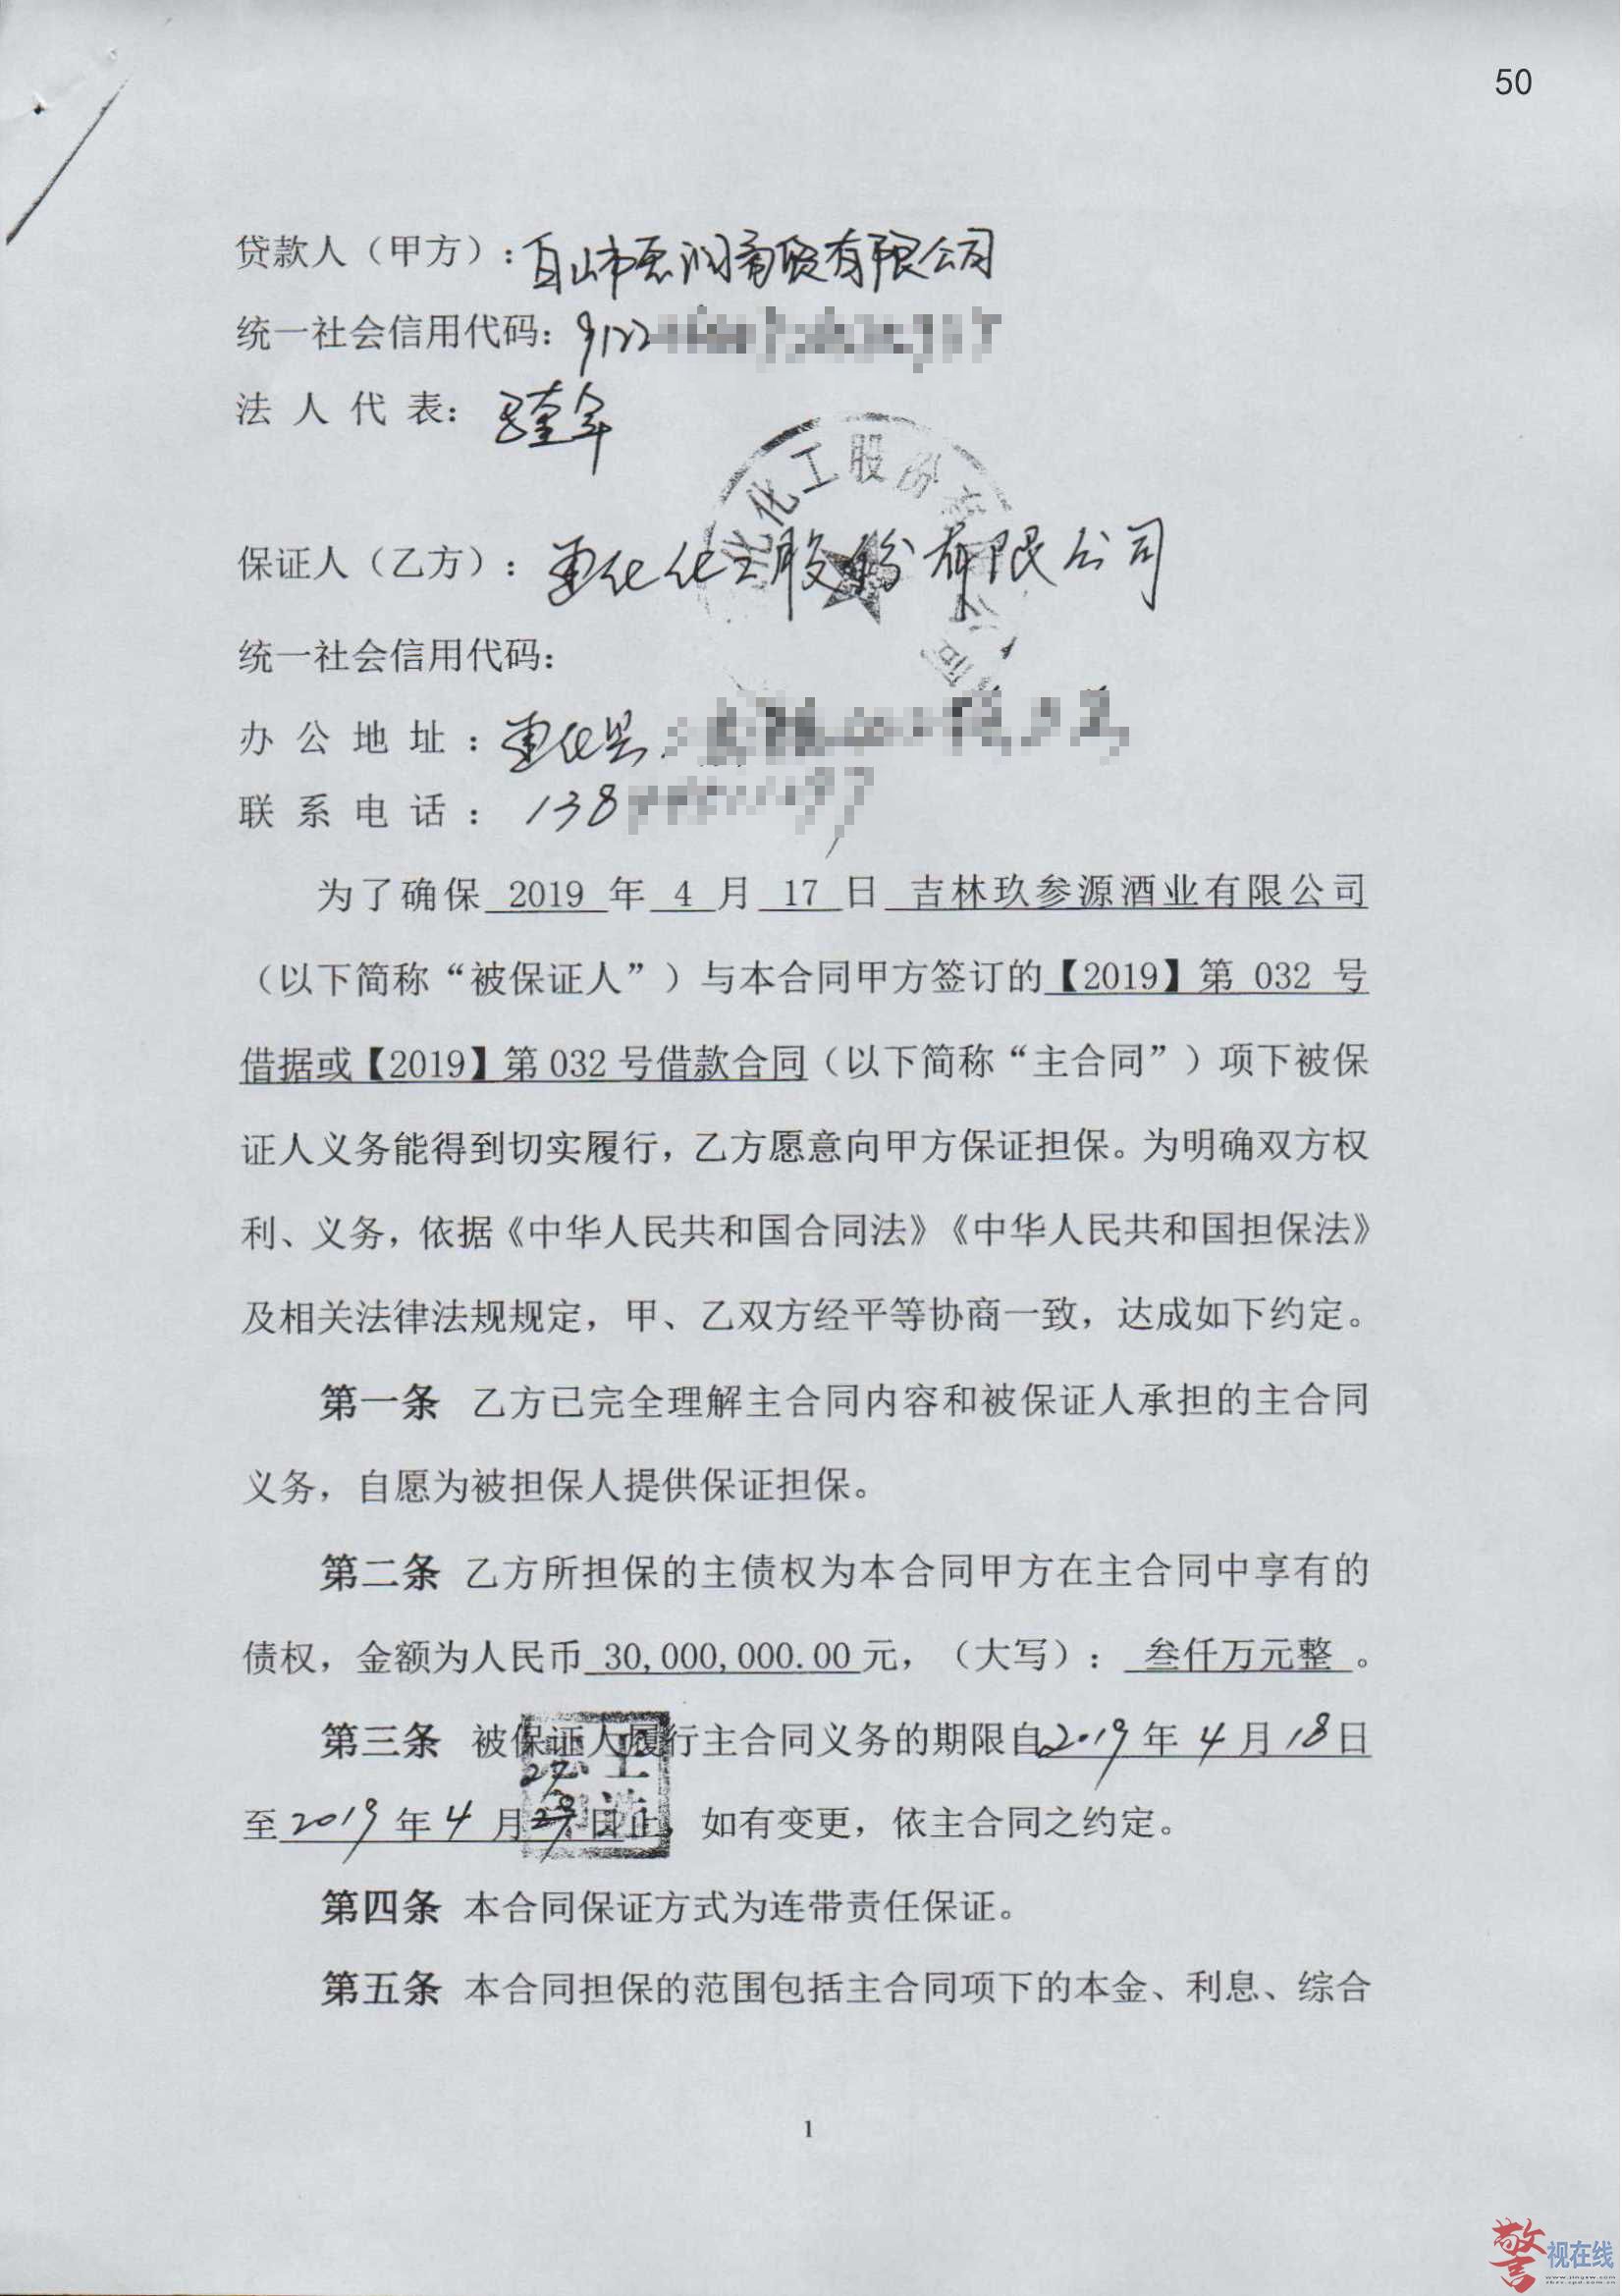 50
贷款人（甲方）：白山市惠润商贸有限公司
统一社会信用代码：9122
法 人 代 表：
保证人（乙方）：通化化工股份有限公司
统一社会信用代码：
办 公 地 址 ：通化县
联 系 电 话 ： 138
为了确保 2019 年 4 月 17 日 吉林玖参源酒业有限公司
（以下简称“被保证人”）与本合同甲方签订的【2019】第 032 号
借据或【2019】第 032 号借款合同（以下简称“主合同”）项下被保
证人义务能得到切实履行，乙方愿意向甲方保证担保。为明确双方权
利、义务，依据《中华人民共和国合同法》《中华人民共和国担保法》
及相关法律法规规定，甲、乙双方经平等协商一致，达成如下约定。
第一条 乙方已完全理解主合同内容和被保证人承担的主合同
义务，自愿为被担保人提供保证担保。
第二条 乙方所担保的主债权为本合同甲方在主合同中享有的
债权，金额为人民币 30,000,000.00 元，（大写）： 叁仟万元整 。
第三条 被保证人履行主合同义务的期限自2019年 4 月 18 日
27
至 2019 年 4 月 28 日止，如有变更，依主合同之约定。
第四条 本合同保证方式为连带责任保证。
第五条 本合同担保的范围包括主合同项下的本金、利息、综合
1
警视在线